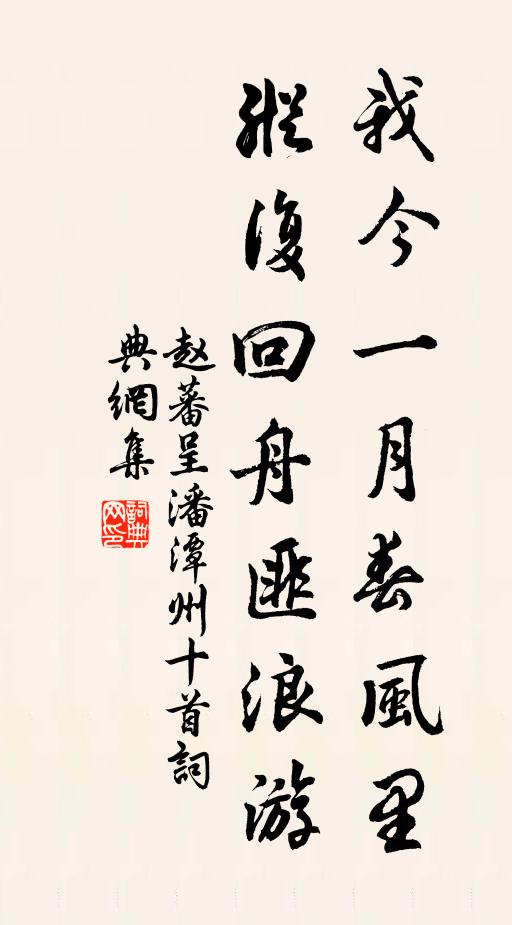 我今一月春風里
縱復回舟匪浪游
赵蕃呈潘潭州十首詞
典網集
詞典
网印